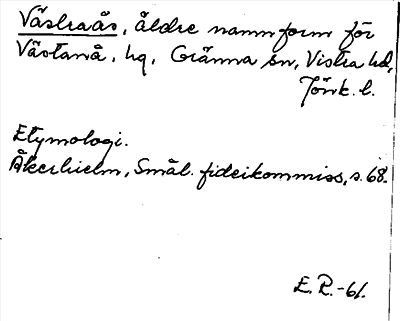 Västraås, äldre namnform för
Västanå, hg, Gränna sn, Vista hd,
Jönk. l.
Etymologi.
Åkerhielm, Smål. fideikommiss, s. 68.
E. R. -61.